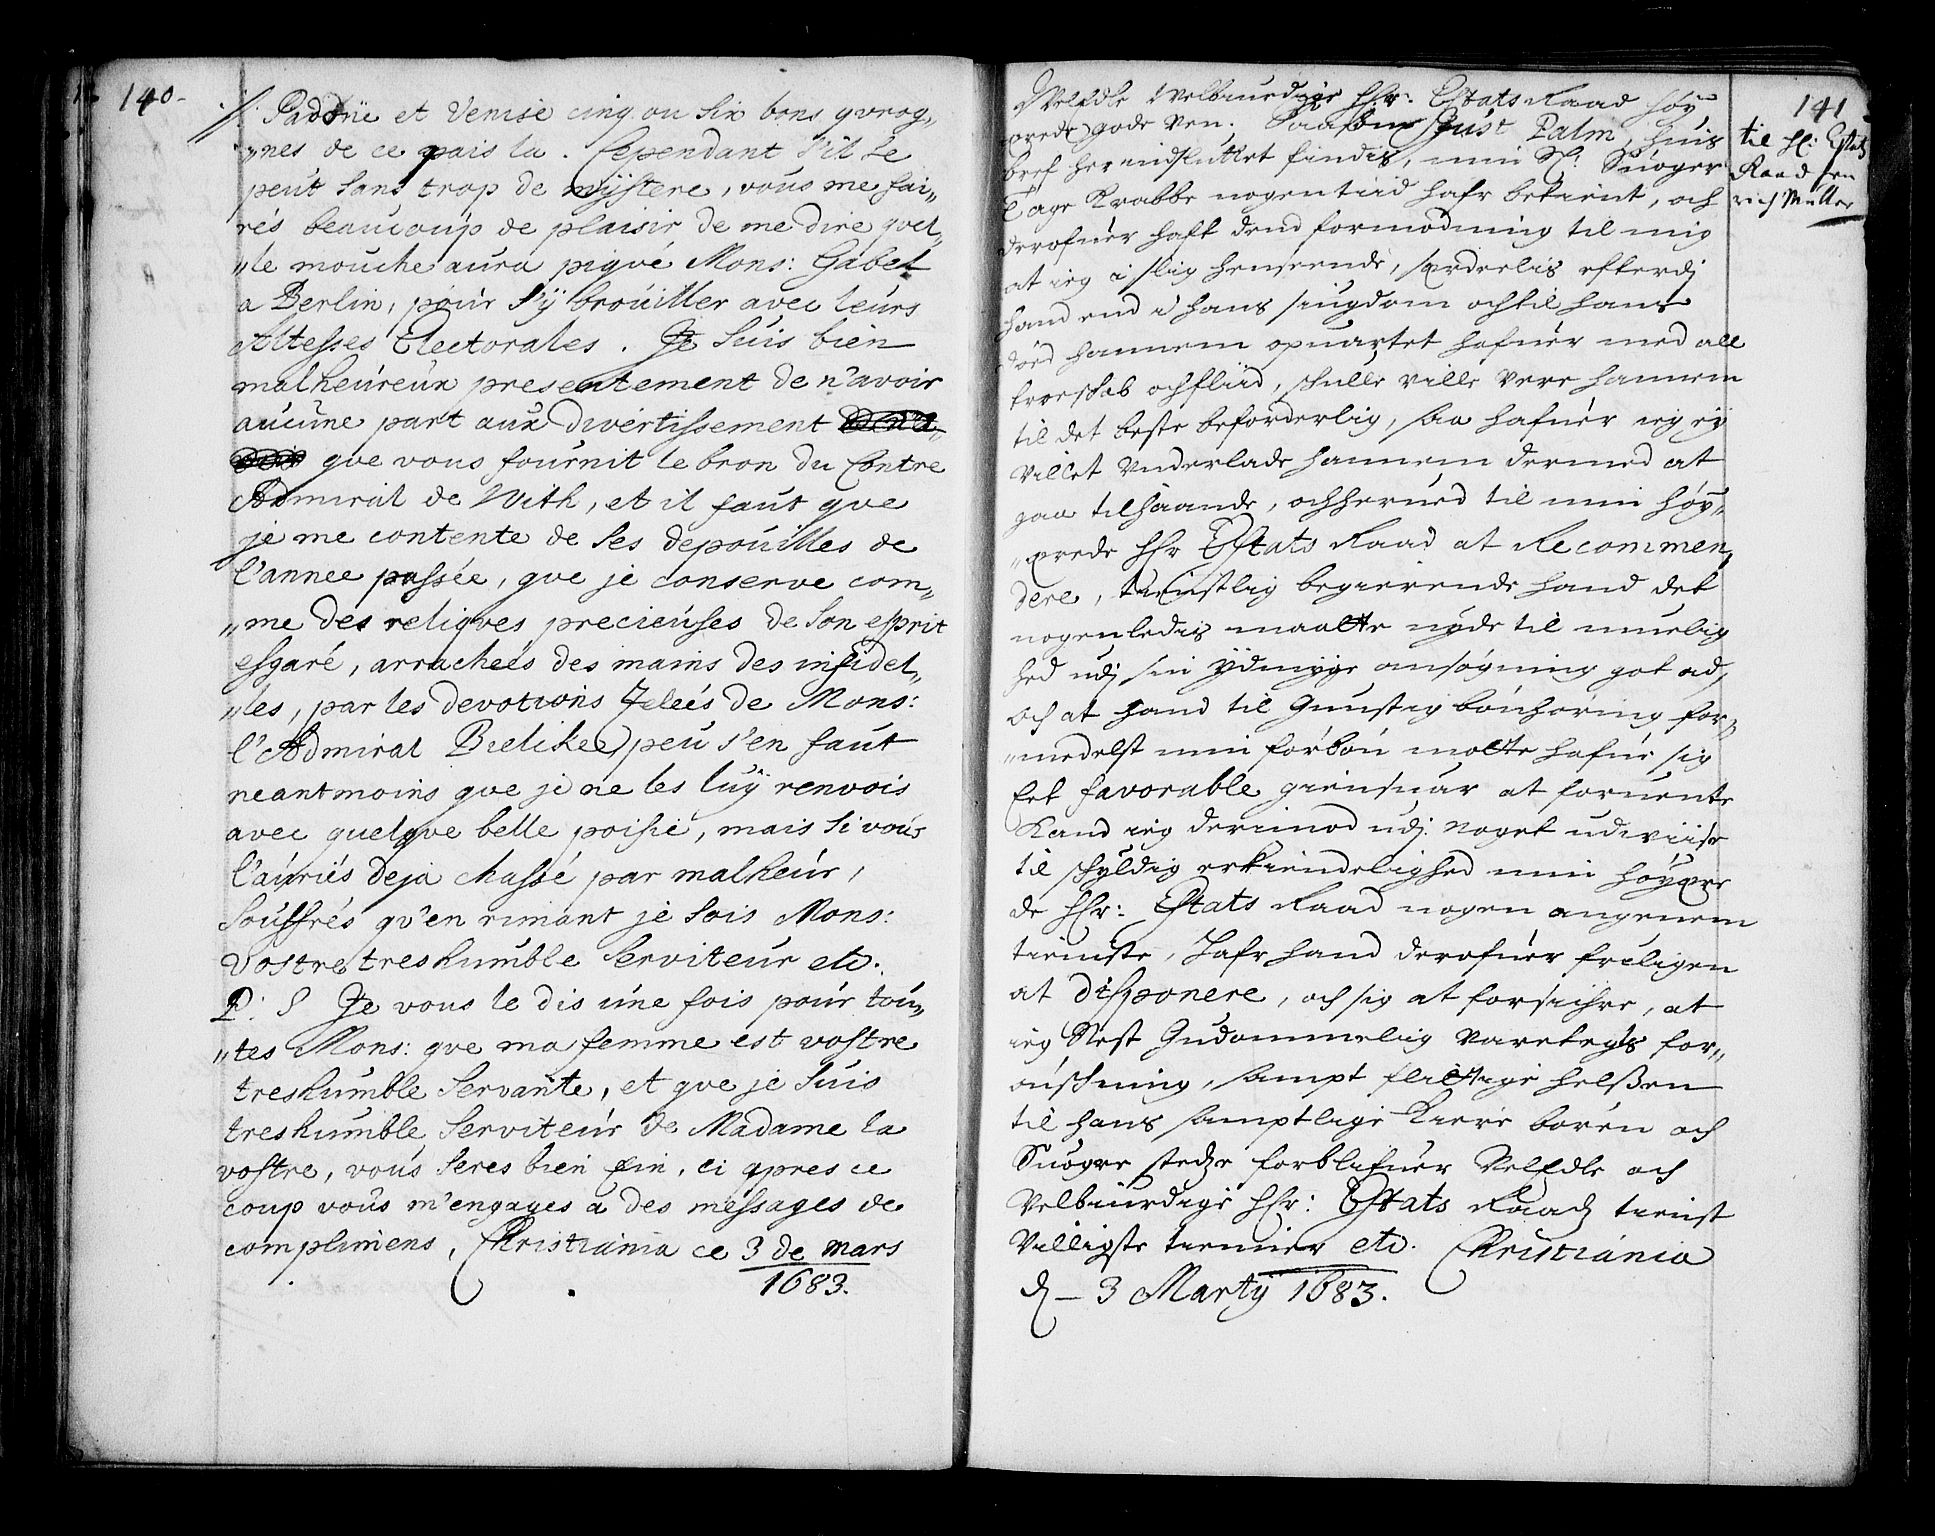 140.
Padoüe et Venise cinq ou six bons yvrog„
„nes de ce pais la. Cependant s'il se
peut sans trop de mÿstere, vous me fai„
rés beaucoup de plaisir de me dire quel„
„le mouche aura piqué Mons: Gabel
a Berlin, pour s'ÿ brouiller avec leurs
Altesses Electorales. Je suis bien
malheureux presentement de n'avoir
aucune part aux divertissement
que vous fournit le bron du Contre
Admiral de With, et il faut que
je me contente de ses depouilles de
l'annee passée, que je conserve com„
„me des reliques precieuses de son esprit
esgaré, arrachées des mains des infidel„
„les, par les devotions Zelées de Mons:
l'Admiral Bielike, peu s'en faut
neantmoins que je ne les luÿ renvois
avec quelque belle poisie, mais si vous
l'auriés deja chassé par malheur,
souffrés qu'en rimant je sois Mons:
Vostre treshumble serviteur etc.
P: S Je vous le dis une fois pour tou„
„tes Mons: que ma femme est vostre
treshumble servante, et que je suis
treshumble serviteur de Madame la
vostre, vous seres bien fin, ci apres ce
coup vous m'engages a des messages de
complimens, Christiania ce 3 de mars
1683.
141
til Hr: Estatz
Raad Hen
rich Müller
Velædle Welbiurdige Hr: Estats Raad høÿ
ærede gode Ven. Saasom Just Palm, huis
bref herindsluttet findis, min Sl: Suoger
Tage Krabbe nogen tiid hafr betient, och
derofuer haft dend formodning til mig
at ieg i slig henseende, særdeelis efterdj
hand end i hans siugdom och til hans
død hannem opuartet hafuer med all
troeskab och fliid, skulle ville vere hannem
til det beste beforderlig, saa hafuer ieg eÿ
villet underlade hannem dermed at
gaa tilhaande, och herued til min høÿ„
„ærede Hr Estats Raad at Recommen„
dere, tienstlig begierende hand det
nogenledis maatte nyde til muelig
hed udj sin ÿdmyge ansøgning got ad,
och at hand til Gunstig bønhøring for„
„medelst min forbøn motte hafue sig
Eet favorable giensuar at foruente
Kand ieg derimod udj noget udviise
til skyldig erkiendelighed min høÿære
de Hr: Estats Raad nogen angenem
tieniste, Hafr hand derofuer frieligen
at disponere, och sig at forsichre, at
ieg Nest Gudommelig varetegts for„
ønschning, sampt flittige helsen
til hans samptlige kiere børen och
Suogre stedze forblifuer Velædle och
Velbiurdige Hr: Estats Raadz tienst
Villigste tiener etc. Christiania
d — 3 Martÿ 1683.